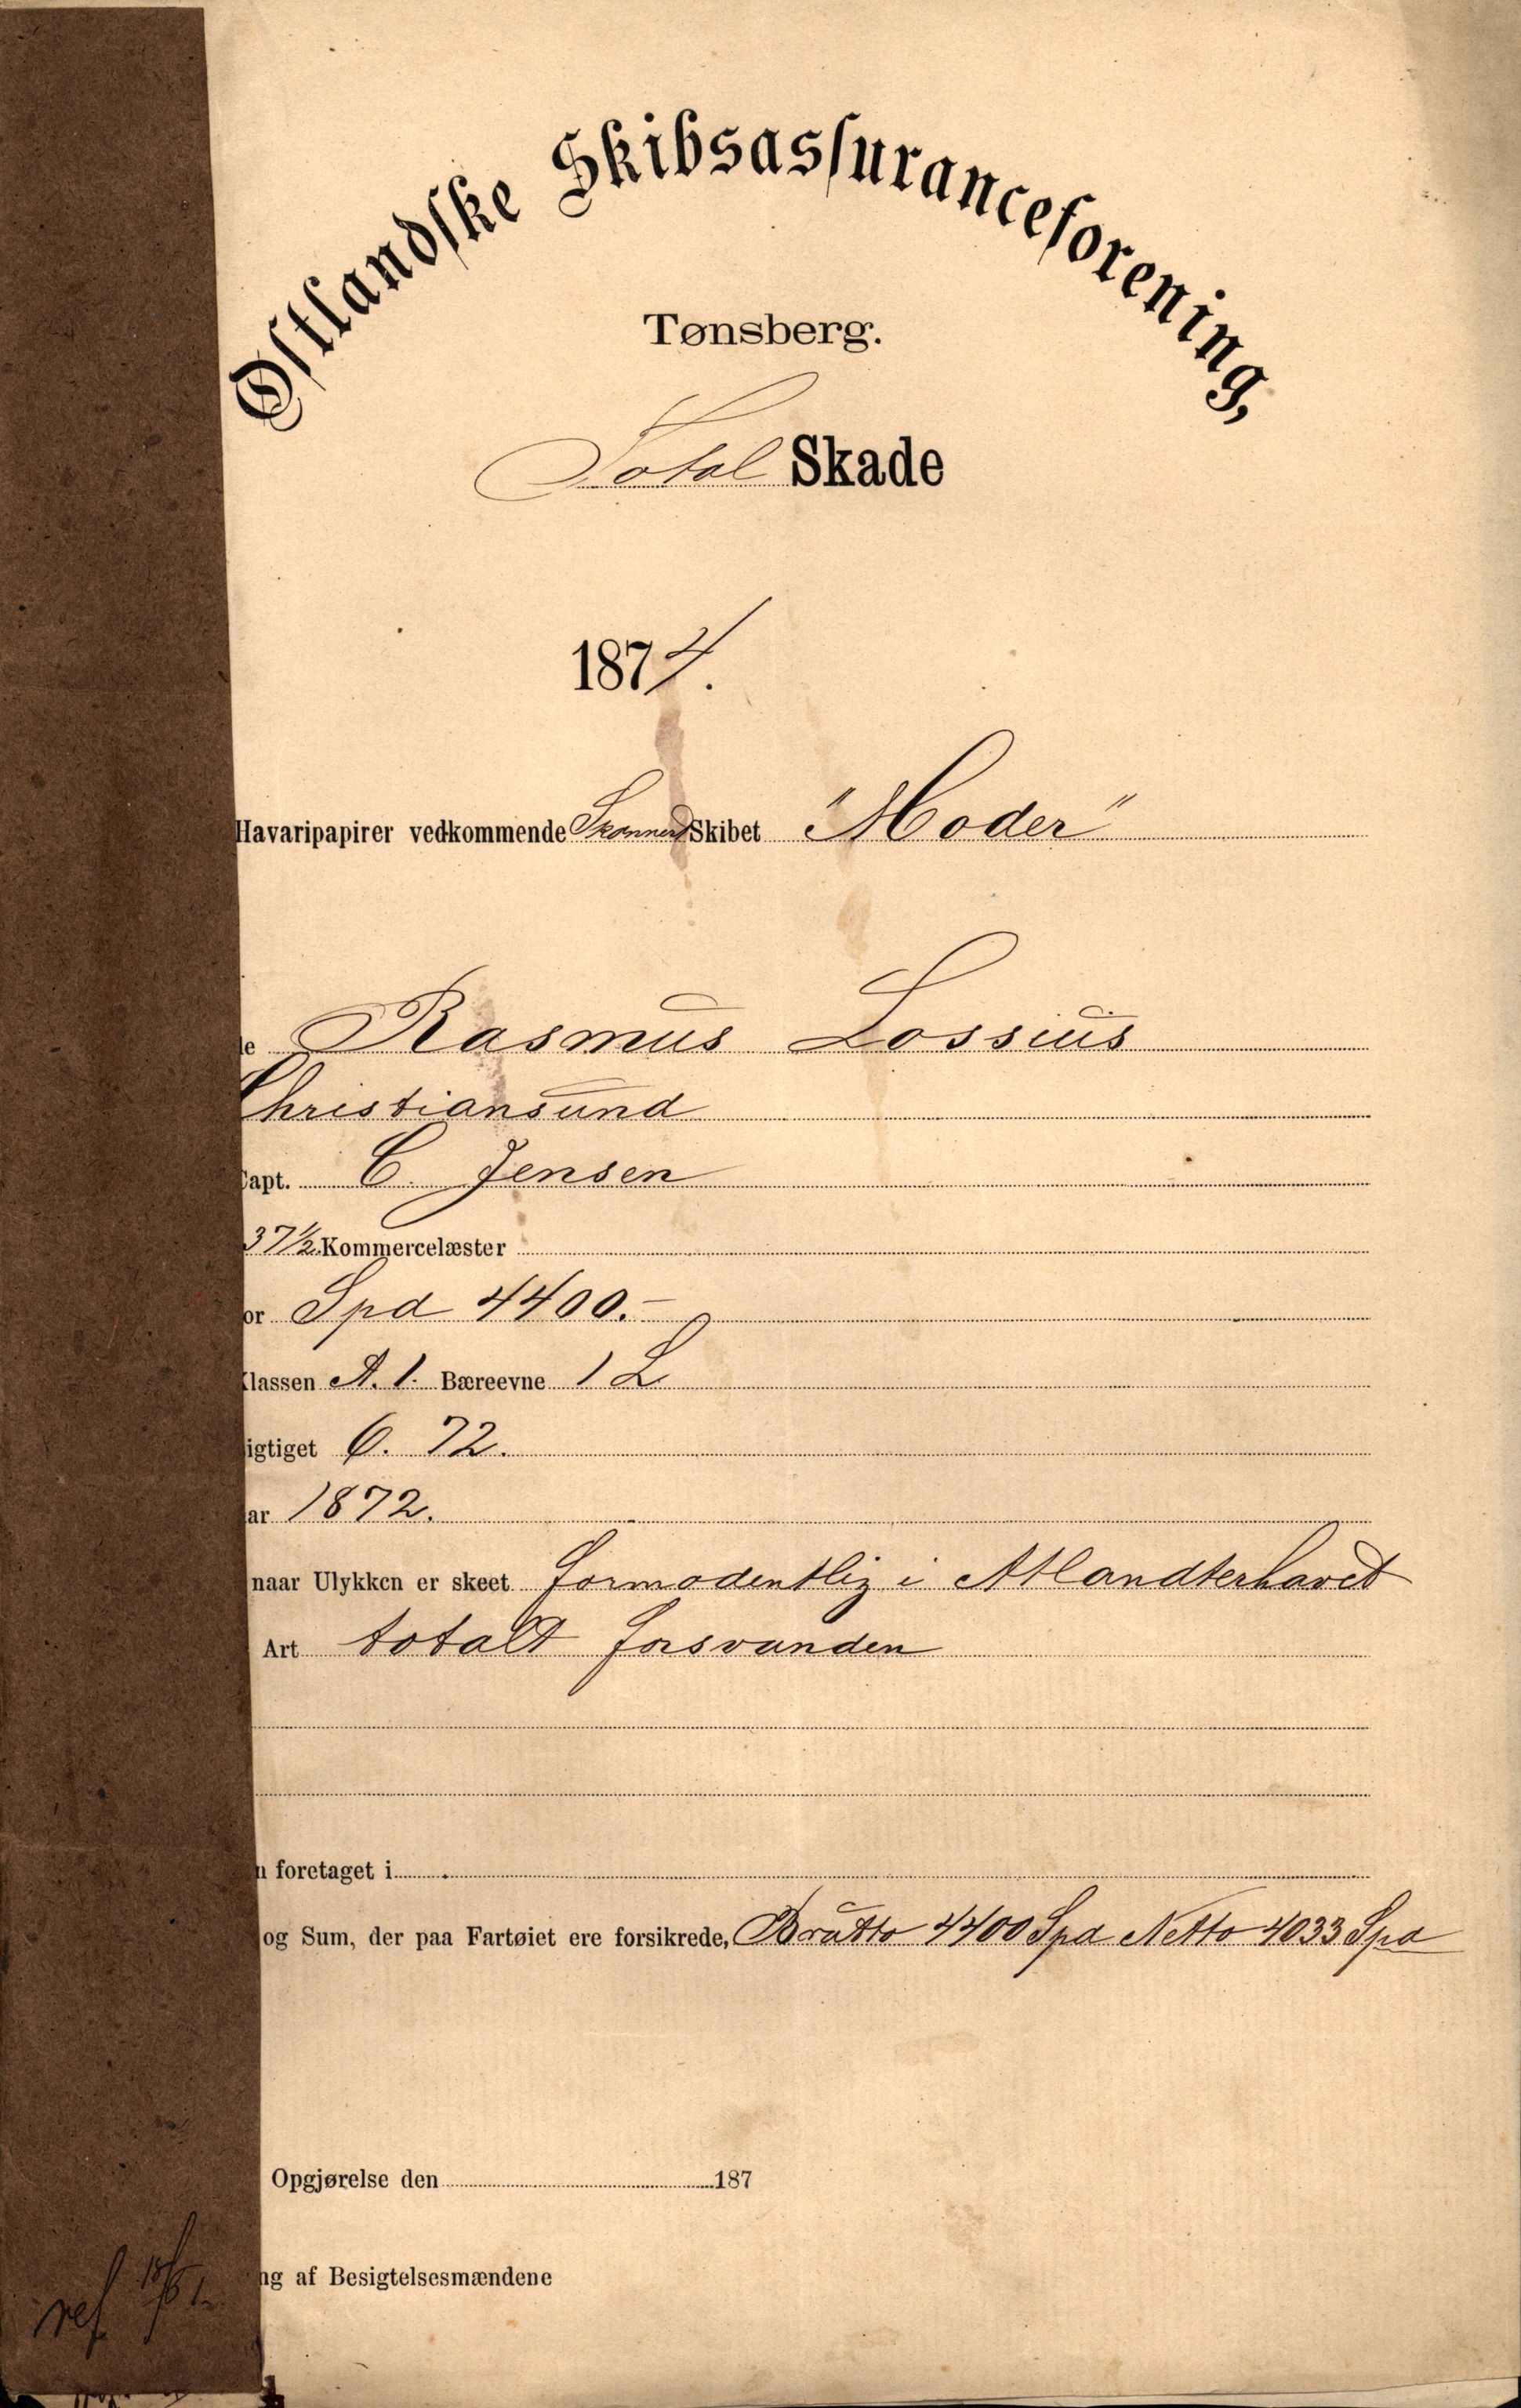 Østlandske Skibsassuranceforening,
Tønsberg.
Total Skade
1874.
Havaripapirer vedkommende Skonnert Skibet "Moder"
Rasmus Lossius
Christiansund
Capt. C. Jensen
37½ Kommercelæster
or Spd 4400.-
Klassen A. 1. Bæreevne 1 L
igtiget 6. 72.
ar 1872.
naar Ulykken er skeet formodentlig i Atlandterhavet
Art totalt forsvunden
n foretaget i
og Sum, der paa Fartøiet ere forsikrede, Brutto 4400 Spd Netto 4033 Spd
Opgjørelse den 187
ng af Besigtelsesmændene
ref